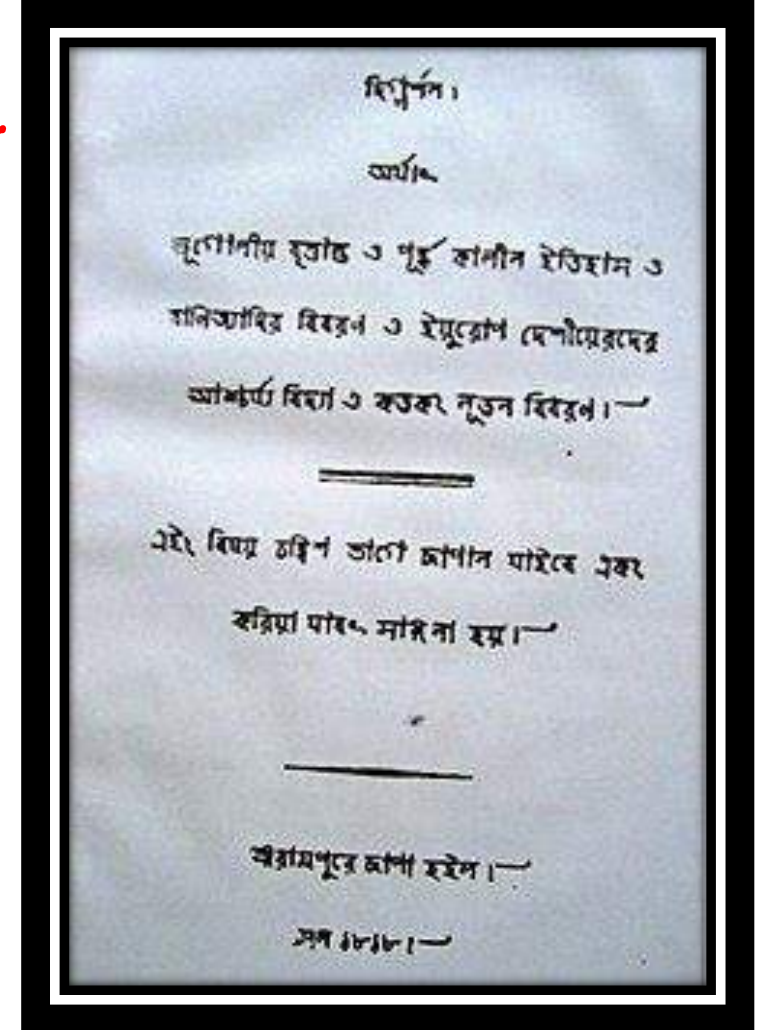 দিগ্দর্শন।
অর্থাৎ
ভূগোলীয় বৃত্তান্ত ও পূর্ব্ব কালীন ইতিহাস ও
বানিজ্যাদির বিবরন ও ইয়ুরোপ দেশীয়েরদের
আশ্চর্য্য বিদ্যা ও কতকং নূতন বিবরন।
এইং বিষয় চব্বিশ ভাগে ছাপান যাইবে একং
করিয়া যাবৎ সাঙ্গ না হয়।
শ্রীরামপুরে ছাপা হইল।
সন ১৮১৮।